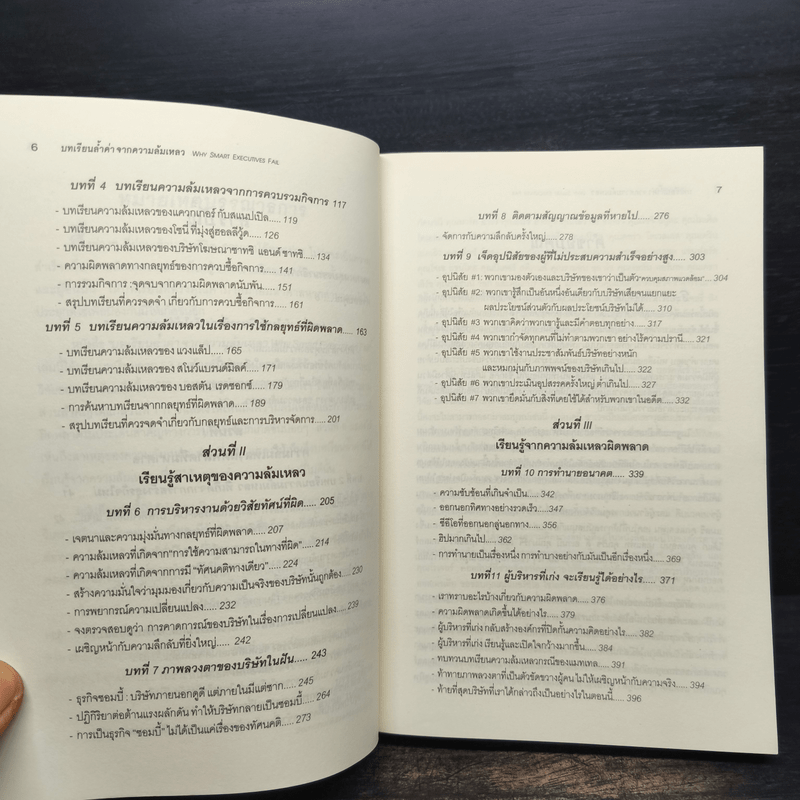 6 บทเรียนล้ำค่า จากความล้มเหลว WHY SMART EXECUTIVES FAIL
บทที่ 4 บทเรียนความล้มเหลวจากการควบรวมกิจการ 117
- บทเรียนความล้มเหลวของแควกเกอร์ กับสแนปเปิล..... 119
- บทเรียนความล้มเหลวของโซนี่ ที่มุ่งสู่ฮอลลีวู้ด..... 126
- บทเรียนความล้มเหลวของบริษัทโฆษณาซาทชิ แอนด์ ซาทชิ..... 134
- ความผิดพลาดทางกลยุทธ์ของการควบซื้อกิจการ..... 141
- การรวมกิจการ :จุดจบจากความผิดพลาดนับพัน..... 151
- สรุปบทเรียนที่ควรจดจำ เกี่ยวกับการควบซื้อกิจการ..... 161
บทที่ 5 บทเรียนความล้มเหลวในเรื่องการใช้กลยุทธ์ที่ผิดพลาด..... 163
- บทเรียนความล้มเหลวของ แวงแล็ป..... 165
- บทเรียนความล้มเหลวของ สโนว์แบรนด์มิลค์..... 171
- บทเรียนความล้มเหลวของ บอสตัน เรดซอกซ์..... 179
- การค้นหาบทเรียนจากกลยุทธ์ที่ผิดพลาด..... 189
- สรุปบทเรียนที่ควรจดจำเกี่ยวกับกลยุทธ์และการบริหารจัดการ..... 201
ส่วนที่ II
เรียนรู้สาเหตุของความล้มเหลว
บทที่ 6 การบริหารงานด้วยวิสัยทัศน์ที่ผิด..... 205
- เจตนาและความมุ่งมั่นทางกลยุทธ์ที่ผิดพลาด..... 207
- ความล้มเหลวที่เกิดจาก"การใช้ความสามารถในทางที่ผิด"..... 214
- ความล้มเหลวที่เกิดจากการมี "ทัศนคติทางเดียว"..... 224
- สร้างความมั่นใจว่ามุมมองเกี่ยวกับความเป็นจริงของบริษัทนั้นถูกต้อง..... 230
- การพยากรณ์ความเปลี่ยนแปลง..... 232
- จงตรวจสอบดูว่า การคาดการณ์ของบริษัทในเรื่องการเปลี่ยนแปลง..... 239
- เผชิญหน้ากับความลึกลับที่ยิ่งใหญ่..... 242
บทที่ 7 ภาพลวงตาของบริษัทในฝัน..... 243
- ธุรกิจซอมบี้ : บริษัทภายนอกดูดี แต่ภายในมีแต่ซาก..... 245
- ปฏิกิริยาต่อต้านแรงผลักดัน ทำให้บริษัทกลายเป็นซอมบี้..... 264
- การเป็นธุรกิจ "ซอมบี้" ไม่ได้เป็นแค่เรื่องของทัศนคติ..... 273
7
บทที่ 8 ติดตามสัญญาณข้อมูลที่หายไป..... 276
- จัดการกับความลึกลับครั้งใหญ่..... 278
บทที่ 9 เจ็ดอุปนิสัยของผู้ที่ไม่ประสบความสำเร็จอย่างสูง..... 303
- อุปนิสัย #1: พวกเขามองตัวเองและบริษัทของเขาว่าเป็นตัว"ควบคุมสภาพแวดล้อม".... 304
- อุปนิสัย #2: พวกเขารู้สึกเป็นอันหนึ่งอันเดียวกับบริษัทเสียจนแยกแยะ
ผลประโยชน์ส่วนตัวกับผลประโยชน์บริษัทไม่ได้..... 310
- อุปนิสัย #3 พวกเขาคิดว่าพวกเขารู้และมีคำตอบทุกอย่าง..... 317
- อุปนิสัย #4 พวกเขากำจัดทุกคนที่ไม่ทำตามพวกเขา อย่างไร้ความปรานี..... 321
- อุปนิสัย #5 พวกเขาใช้งานประชาสัมพันธ์บริษัทอย่างหนัก
และหมกมุ่นกับภาพพจน์ของบริษัทเกินไป..... 322
- อุปนิสัย #6 พวกเขาประเมินอุปสรรคครั้งใหญ่ ต่ำเกินไป..... 327
- อุปนิสัย #7 พวกเขายึดมันกับสิ่งที่เคยใช้ได้สำหรับพวกเขาในอดีต..... 332
ส่วนที่ III
เรียนรู้จากความล้มเหลวผิดพลาด
บทที่ 10 การทำนายอนาคต..... 339
- ความซับซ้อนที่เกินจำเป็น..... 342
- ออกนอกทิศทางอย่างรวดเร็ว..... 347
- ซีอีโอที่ออกนอกลู่นอกทาง..... 356
- ฮิปมากเกินไป..... 362
- การทำนายเป็นเรื่องหนึ่ง การทำบางอย่างกับมันเป็นอีกเรื่องหนึ่ง..... 369
บทที่11 ผู้บริหารที่เก่ง จะเรียนรู้ได้อย่างไร..... 371
- เราทราบอะไรบ้างเกี่ยวกับความผิดพลาด..... 376
- ความผิดพลาดเกิดขึ้นได้อย่างไร..... 379
- ผู้บริหารที่เก่ง กลับสร้างองค์กรที่ปิดกั้นความคิดอย่างไร..... 382
- ผู้บริหารที่เก่ง เรียนรู้ และเปิดใจกว้างมากขึ้น..... 384
- ทบทวนบทเรียนความล้มเหลวกรณีของแมทเทล..... 391
- ท้าทายภาพลวงตาที่เป็นตัวขัดขวางผู้คน ไม่ให้เผชิญหน้ากับความจริง..... 394
- ท้ายที่สุดบริษัทที่เราได้กล่าวถึงเป็นอย่างไรในตอนนี้..... 396